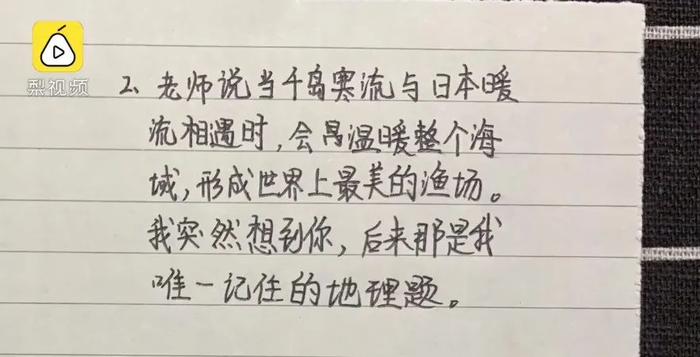 梨视频
2、老师说当千岛寒流与日本暖
流相遇时，会温暖整个海
域，形成世界上最美的渔场。
我突然想到你，后来那是我
唯一记住的地理题。